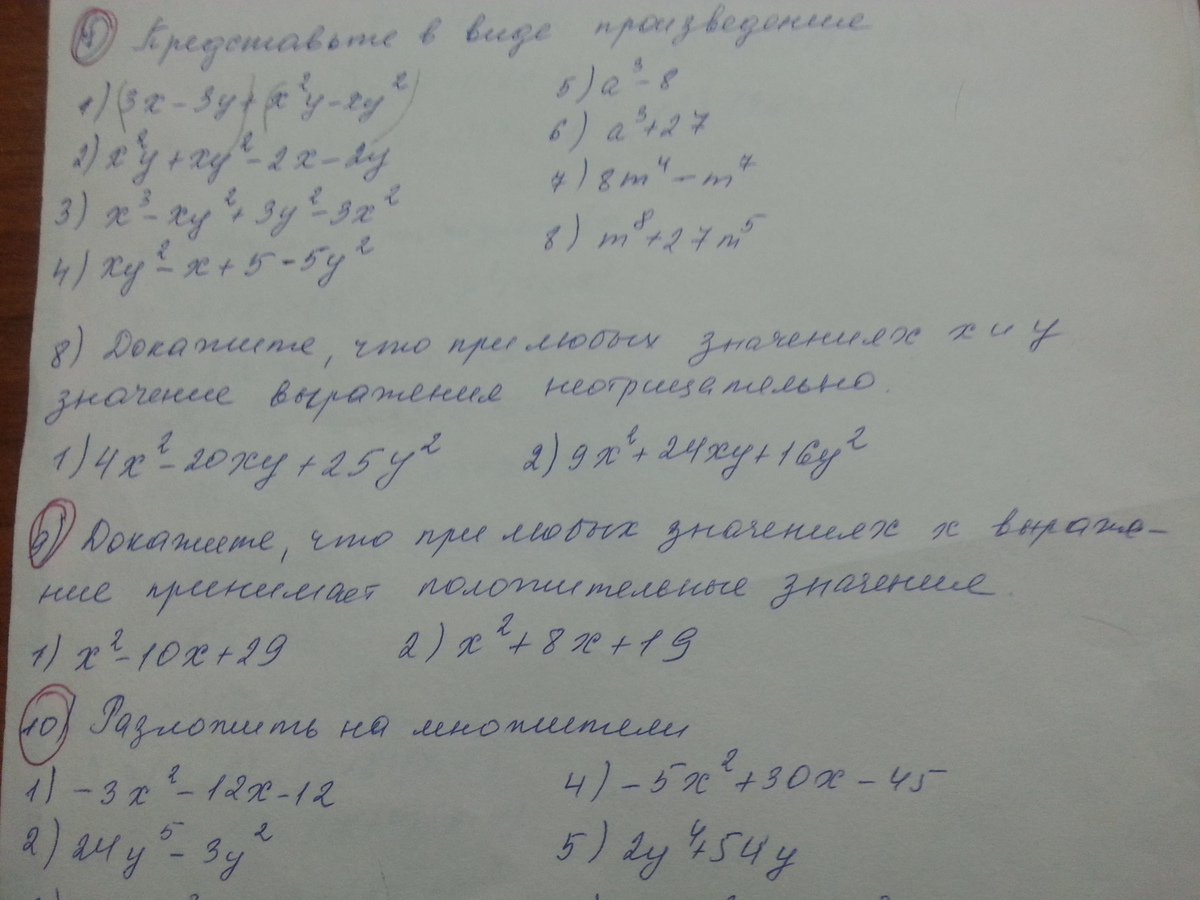 7) Представьте в виде произведение
1) (3x - 3y) + (x²y - xy²)
5) a³ - 8
2) x²y + xy² - 2x - 2y
6) a³ + 27
3) x³ - xy² + 3y² - 3x²
7) 8m⁴ - m⁷
4) xy² - x + 5 - 5y²
8) m⁸ + 27m⁵
8) Докажите, что при любых значениях x и y
значение выражения неотрицательно.
1) 4x² - 20xy + 25y²   2) 9x² + 24xy + 16y²
9) Докажите, что при любых значениях x выраже-
ние принимает положительные значение.
1) x² - 10x + 29   2) x² + 8x + 19
10) Разложить на множители
1) -3x² - 12x - 12
4) -5x² + 30x - 45
2) 24y⁵ - 3y²
5) 2y⁴ + 54y